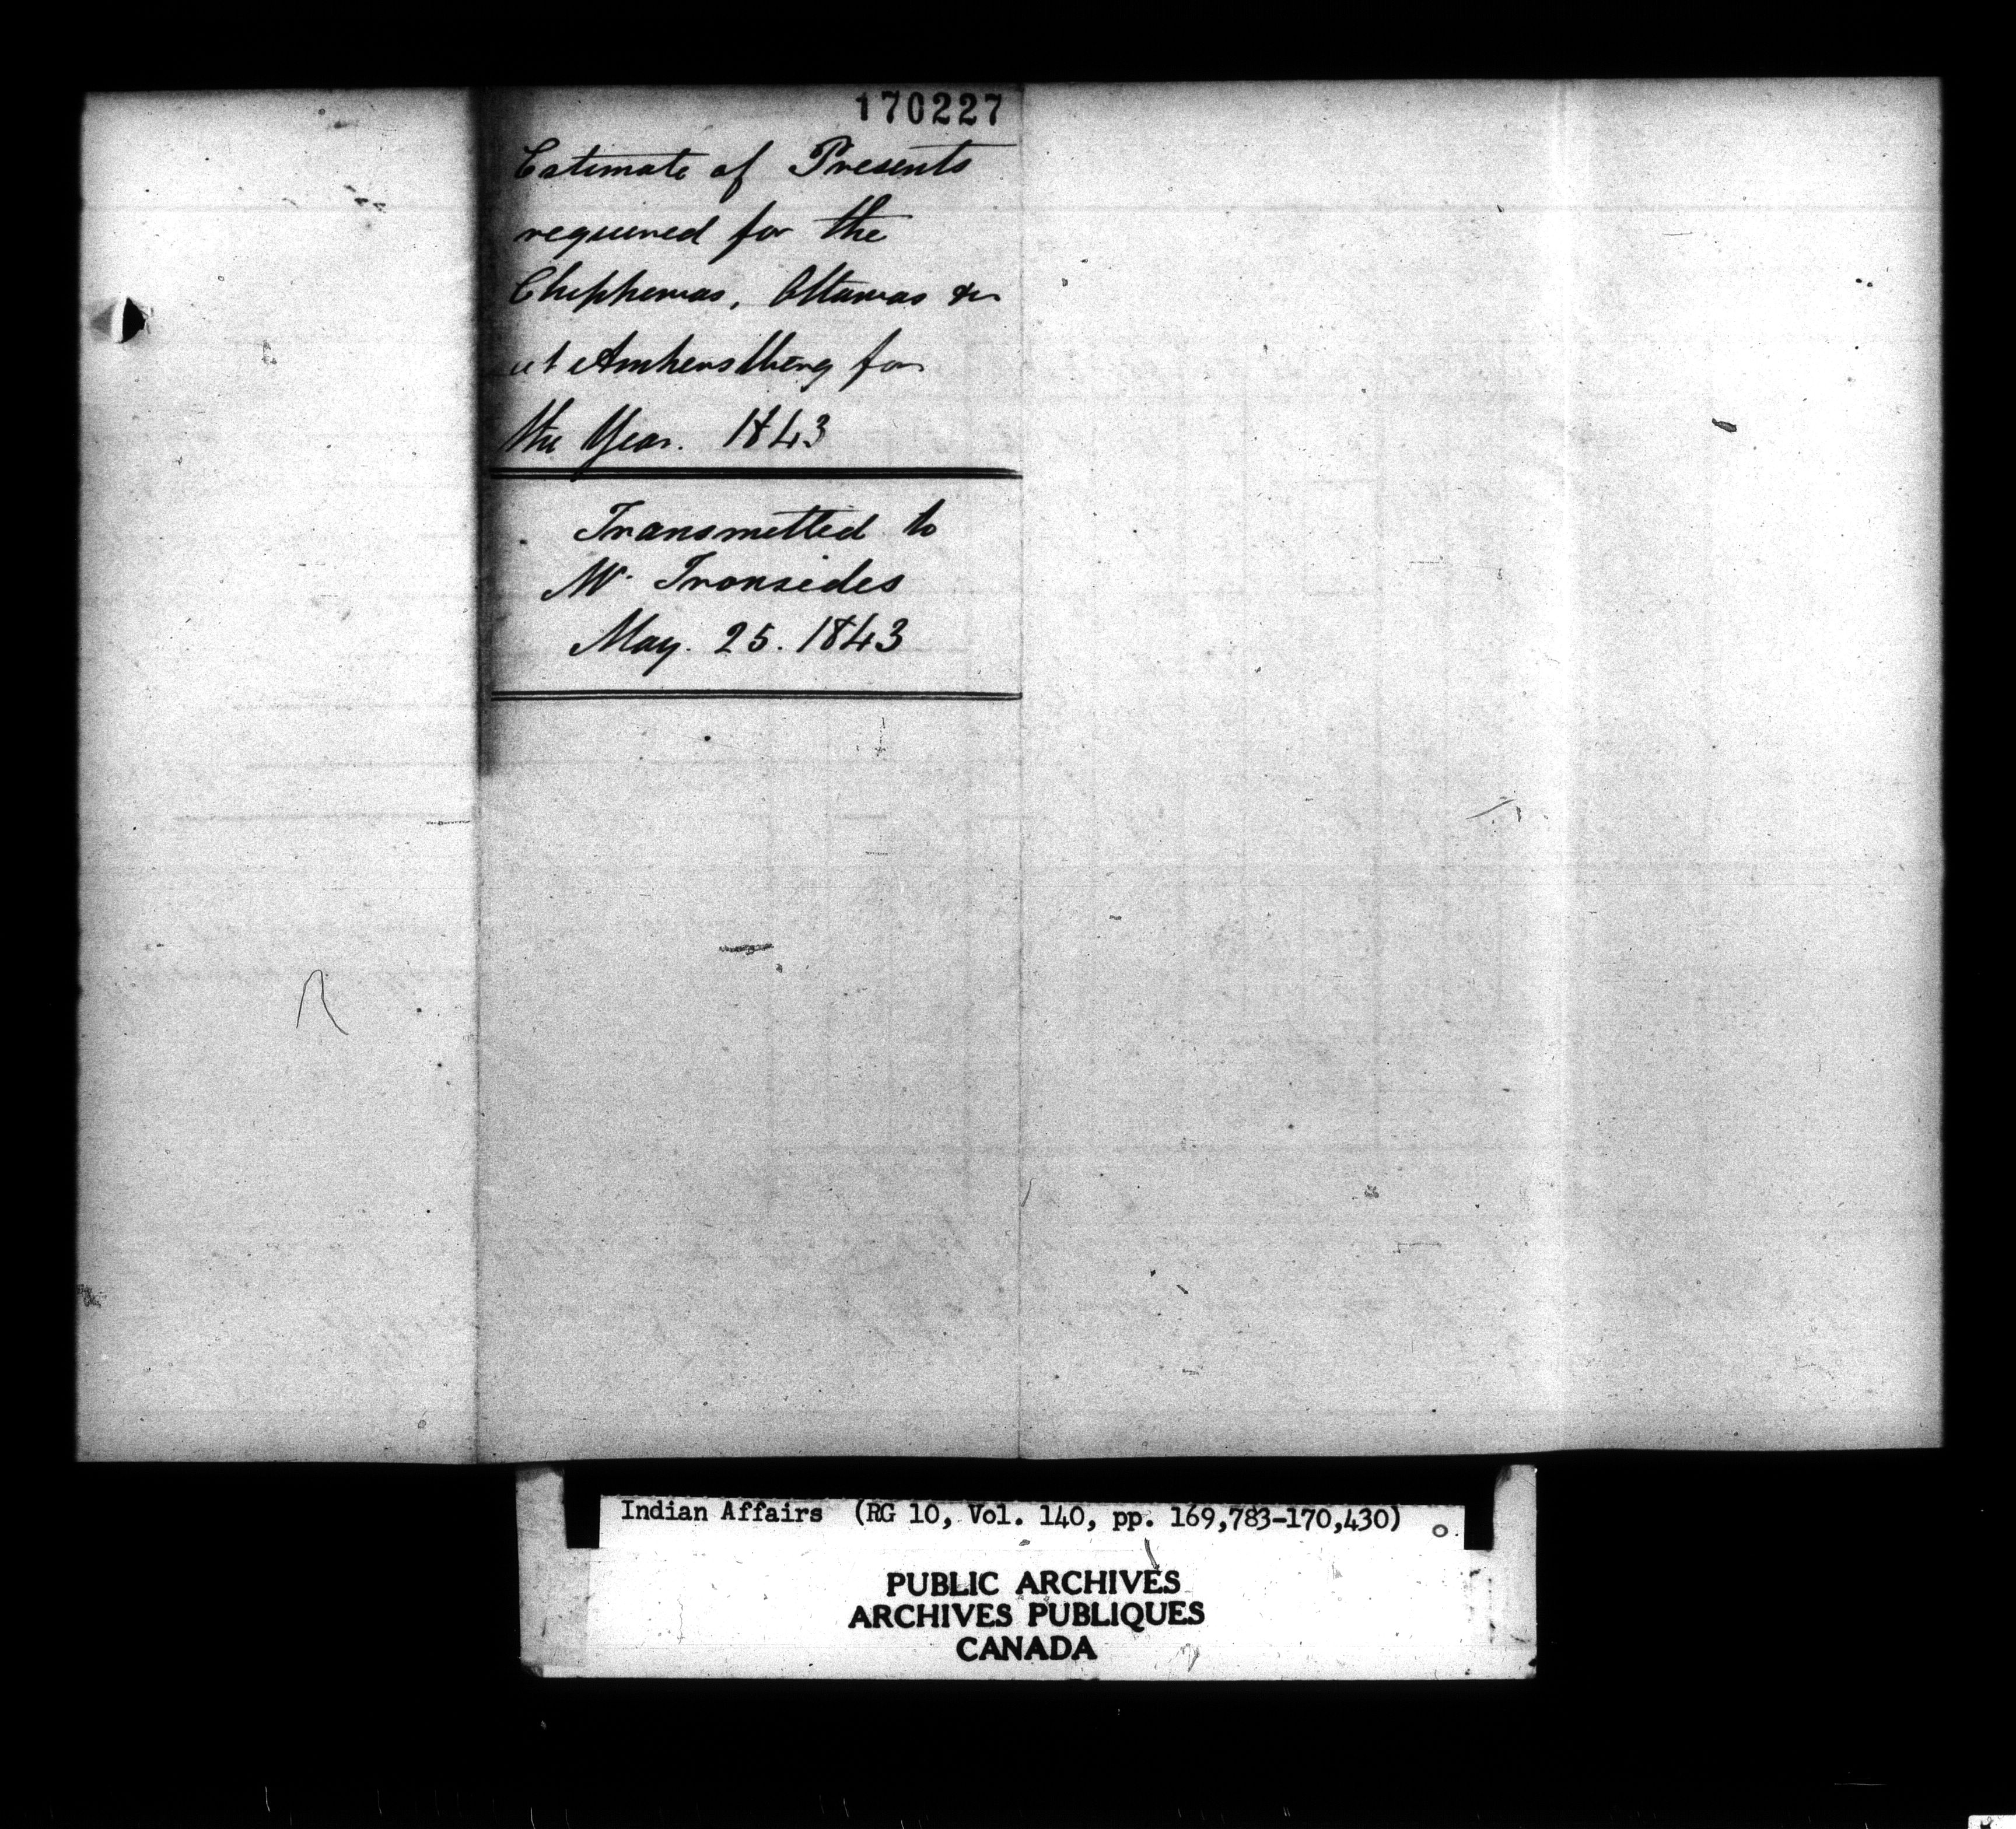 170227
Estimate of Presents
required for the
Chippewas, Ottawas &c
at Amherstburg for
the Year. 1843
Transmitted to
Mr. Ironsides
May. 25. 1843
Indian Affairs (RG 10, Vol. 140, pp. 169,783-170,430)
PUBLIC ARCHIVES
ARCHIVES PUBLIQUES
CANADA